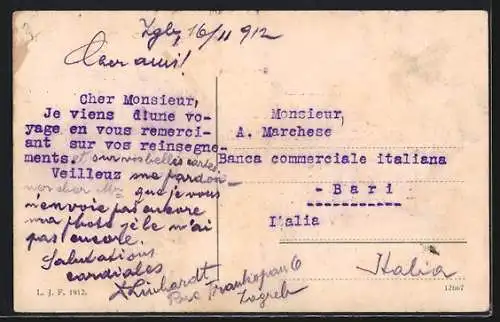 Zgb, 16/II 912
Cher ami!
Cher Monsieur,
Je viens d'une vo-
yage en vous remerci-
ant sur vos reinsegne-
ments. et sur vos belles cartes.
Veilleuz me pardon-
mon cher que je vous
n'envoie pas encore
ma photo je le m'ai
pas encore.
Salutations
cordiales
Linhardt
Frankopan 6
Zagreb
L. J. F. 1912.
Monsieur,
A. Marchese
Banca commerciale italiana
- Bari -
Italia
Italia
12667